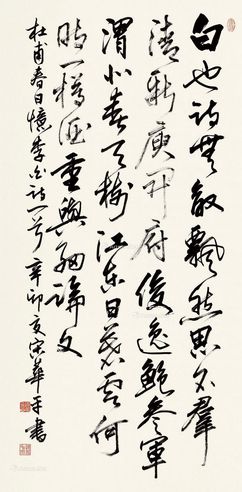 白也詩無敵飄然思不羣
清新庾開府俊逸鮑參軍
渭北春天樹江東日暮雲何
時一樽酒重與細論文
杜甫春日憶李白詩一首辛卯友宋華平書